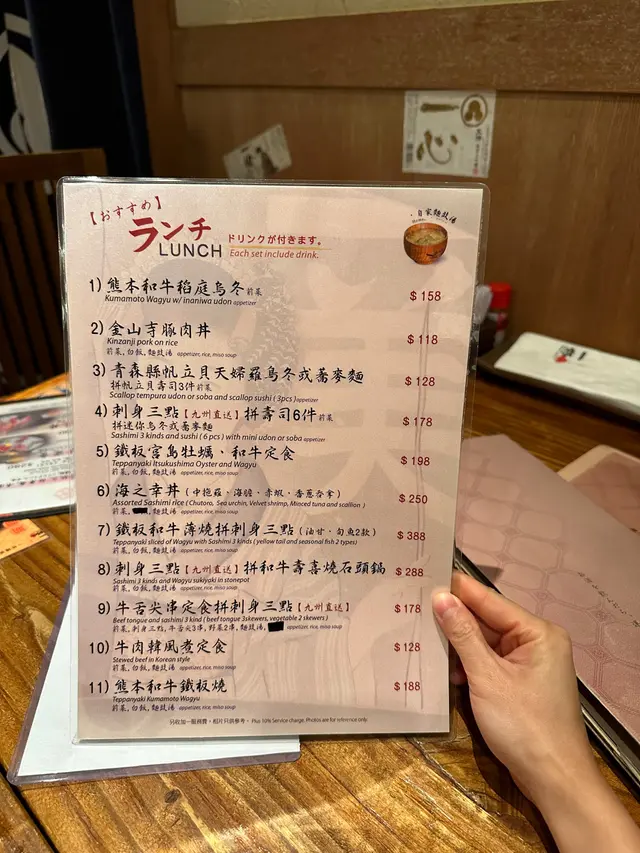 【おすすめ】
ランチ
LUNCH
ドリンクが付きます。
Each set include drink.
自家麵豉湯
1) 熊本和牛稻庭烏冬 前菜 $ 158
Kumamoto Wagyu w/ inaniwa udon appetizer
2) 金山寺豚肉丼 $ 118
Kinzanji pork on rice
前菜, 白飯, 麵豉湯 appetizer, rice, miso soup
3) 青森縣帆立貝天婦羅烏冬或蕎麥麵 $ 128
拼帆立貝壽司3件 前菜
Scallop tempura udon or soba and scallop sushi ( 3pcs ) appetizer
4) 刺身三點【九州直送】拼壽司6件 前菜 $ 178
拼迷你烏冬或蕎麥麵
Sashimi 3 kinds and sushi ( 6 pcs ) with mini udon or soba appetizer
5) 鐵板宮島牡蠣、和牛定食 $ 198
Teppanyaki Itsukushima Oyster and Wagyu
前菜, 白飯, 麵豉湯 appetizer, rice, miso soup
6) 海之幸丼 (中拖羅·海膽·赤蝦·香蔥吞拿) $ 250
Assorted Sashimi rice ( Chutoro, Sea urchin, Velvet shrimp, Minced tuna and scallion )
前菜, 麵豉湯 appetizer, rice, miso soup
7) 鐵板和牛薄燒拼刺身三點 (油甘·旬魚2款) $ 388
Teppanyaki sliced of Wagyu with Sashimi 3 kinds ( yellow tail and seasonal fish 2 types)
前菜, 白飯, 麵豉湯 appetizer, rice, miso soup
8) 刺身三點【九州直送】拼和牛壽喜燒石頭鍋 $ 288
Sashimi 3 kinds and Wagyu sukiyaki in stonepot
前菜, 白飯, 麵豉湯 appetizer, rice, miso soup
9) 牛舌尖串定食拼刺身三點【九州直送】 $ 178
Beef tongue and sashimi 3 kind ( beef tongue 3skewers, vegetable 2 skewers )
前菜, 刺身三點, 牛舌尖3串, 野菜2串, 麵豉湯, appetizer, rice, miso soup
10) 牛肉韓風煮定食 $ 128
Stewed beef in Korean style
前菜, 白飯, 麵豉湯 appetizer, rice, miso soup
11) 熊本和牛鐵板燒 $ 188
Teppanyaki Kumamoto Wagyu
前菜, 白飯, 麵豉湯 appetizer, rice, miso soup
另收加一服務費，相片只供參考。 Plus 10% Service charge. Photos are for reference only.
一心